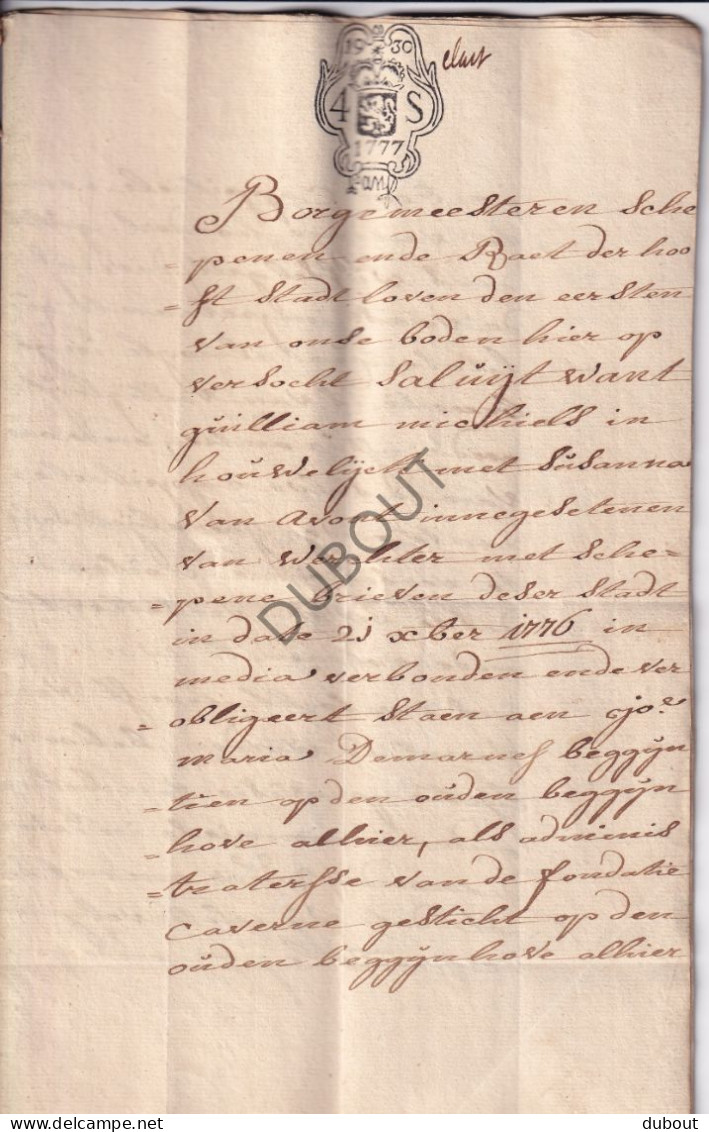 19 30
4 S
1777
Borgemeesteren Sche
=penen ende Raet der hoo
=ft Stadt loven den eersten
van onse boden hier op
versocht Saluijt want
guilliam michiels in
houwelijck met Susanna
van avont innegesetenen
van werchter met Sche=
=pene brieven deser Stadt
in date 21 xber 1776 in
media verbonden ende ver
=obligeert Staen aen Cjo.e
maria Demarnef beggijn
=tien op den ouden beggijn
=hove alhier, als adminis
=tratersse van de fondatie
Caverne gesticht op den
ouden beggijnhove alhier
DUBOUT
dubout
delcampe.net